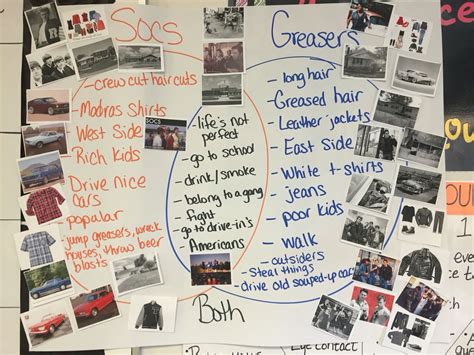 Socs
Greasers
- crew cut hair cuts
- Madras Shirts
- West Side
- Rich kids
Drive nice
cars
- popular
- jump greasers, wreck
houses, throw beer
blasts
- life's not
perfect
- go to school
- drink/smoke
- belong to a gang
- fight
- go to drive-in's
Americans
- long hair
- Greased hair
- Leather jackets
- East Side
- White t-shirts
jeans
- poor kids
- walk
- outsiders
- Steal things
- drive old souped-up cars
Both
SOCS
Eye contact